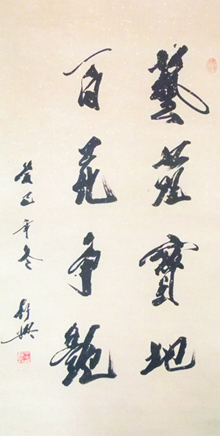 藝苑寶地
百花争艷
癸巳年冬